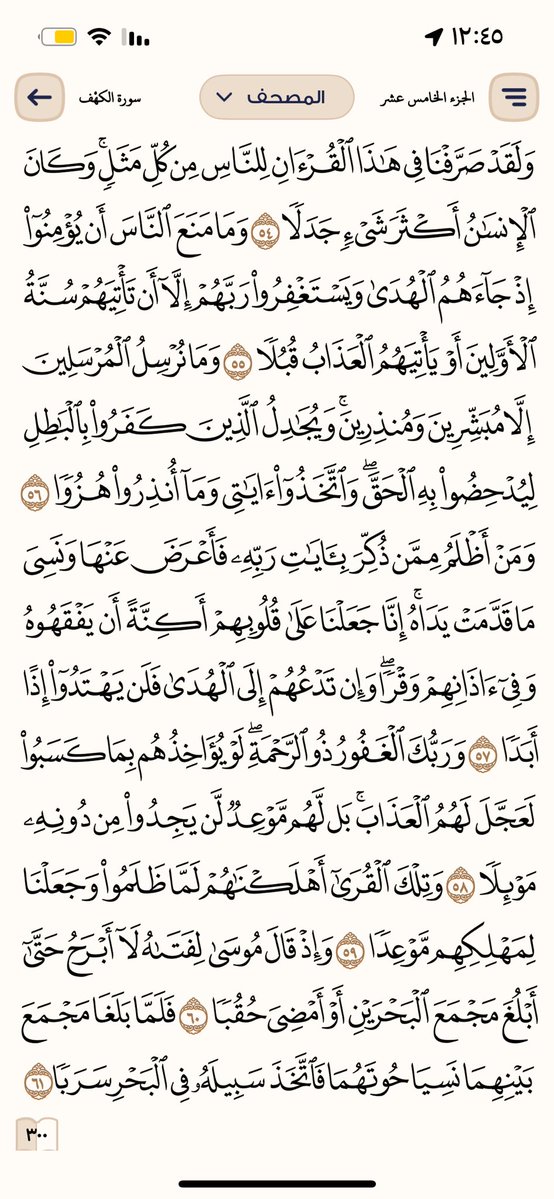 ١٢:٤٥
الجزء الخامس عشر
المصحف
سورة الكهف
وَلَقَدْ صَرَّفْنَا فِي هَٰذَا ٱلْقُرْءَانِ لِلنَّاسِ مِن كُلِّ مَثَلٍۚ وَكَانَ
ٱلْإِنسَٰنُ أَكْثَرَ شَىْءٍ جَدَلًا ٥٤ وَمَا مَنَعَ ٱلنَّاسَ أَن يُؤْمِنُوٓا۟
إِذْ جَآءَهُمُ ٱلْهُدَىٰ وَيَسْتَغْفِرُوا۟ رَبَّهُمْ إِلَّآ أَن تَأْتِيَهُمْ سُنَّةُ
ٱلْأَوَّلِينَ أَوْ يَأْتِيَهُمُ ٱلْعَذَابُ قُبُلًا ٥٥ وَمَا نُرْسِلُ ٱلْمُرْسَلِينَ
إِلَّا مُبَشِّرِينَ وَمُنذِرِينَۚ وَيُجَٰدِلُ ٱلَّذِينَ كَفَرُوا۟ بِٱلْبَٰطِلِ
لِيُدْحِضُوا۟ بِهِ ٱلْحَقَّۖ وَٱتَّخَذُوٓا۟ ءَايَٰتِى وَمَآ أُنذِرُوا۟ هُزُوًا ٥٦
وَمَنْ أَظْلَمُ مِمَّن ذُكِّرَ بِـَٔايَٰتِ رَبِّهِۦ فَأَعْرَضَ عَنْهَا وَنَسِىَ
مَا قَدَّمَتْ يَدَاهُۚ إِنَّا جَعَلْنَا عَلَىٰ قُلُوبِهِمْ أَكِنَّةً أَن يَفْقَهُوهُ
وَفِىٓ ءَاذَانِهِمْ وَقْرًاۖ وَإِن تَدْعُهُمْ إِلَى ٱلْهُدَىٰ فَلَن يَهْتَدُوٓا۟ إِذًا
أَبَدًا ٥٧ وَرَبُّكَ ٱلْغَفُورُ ذُو ٱلرَّحْمَةِۖ لَوْ يُؤَاخِذُهُم بِمَا كَسَبُوا۟
لَعَجَّلَ لَهُمُ ٱلْعَذَابَۚ بَل لَّهُم مَّوْعِدٌ لَّن يَجِدُوا۟ مِن دُونِهِۦ
مَوْئِلًا ٥٨ وَتِلْكَ ٱلْقُرَىٰٓ أَهْلَكْنَٰهُمْ لَمَّا ظَلَمُوا۟ وَجَعَلْنَا
لِمَهْلِكِهِم مَّوْعِدًا ٥٩ وَإِذْ قَالَ مُوسَىٰ لِفَتَىٰهُ لَآ أَبْرَحُ حَتَّىٰٓ
أَبْلُغَ مَجْمَعَ ٱلْبَحْرَيْنِ أَوْ أَمْضِىَ حُقُبًا ٦٠ فَلَمَّا بَلَغَا مَجْمَعَ
بَيْنِهِمَا نَسِيَا حُوتَهُمَا فَٱتَّخَذَ سَبِيلَهُۥ فِى ٱلْبَحْرِ سَرَبًا ٦١
٣٠٠